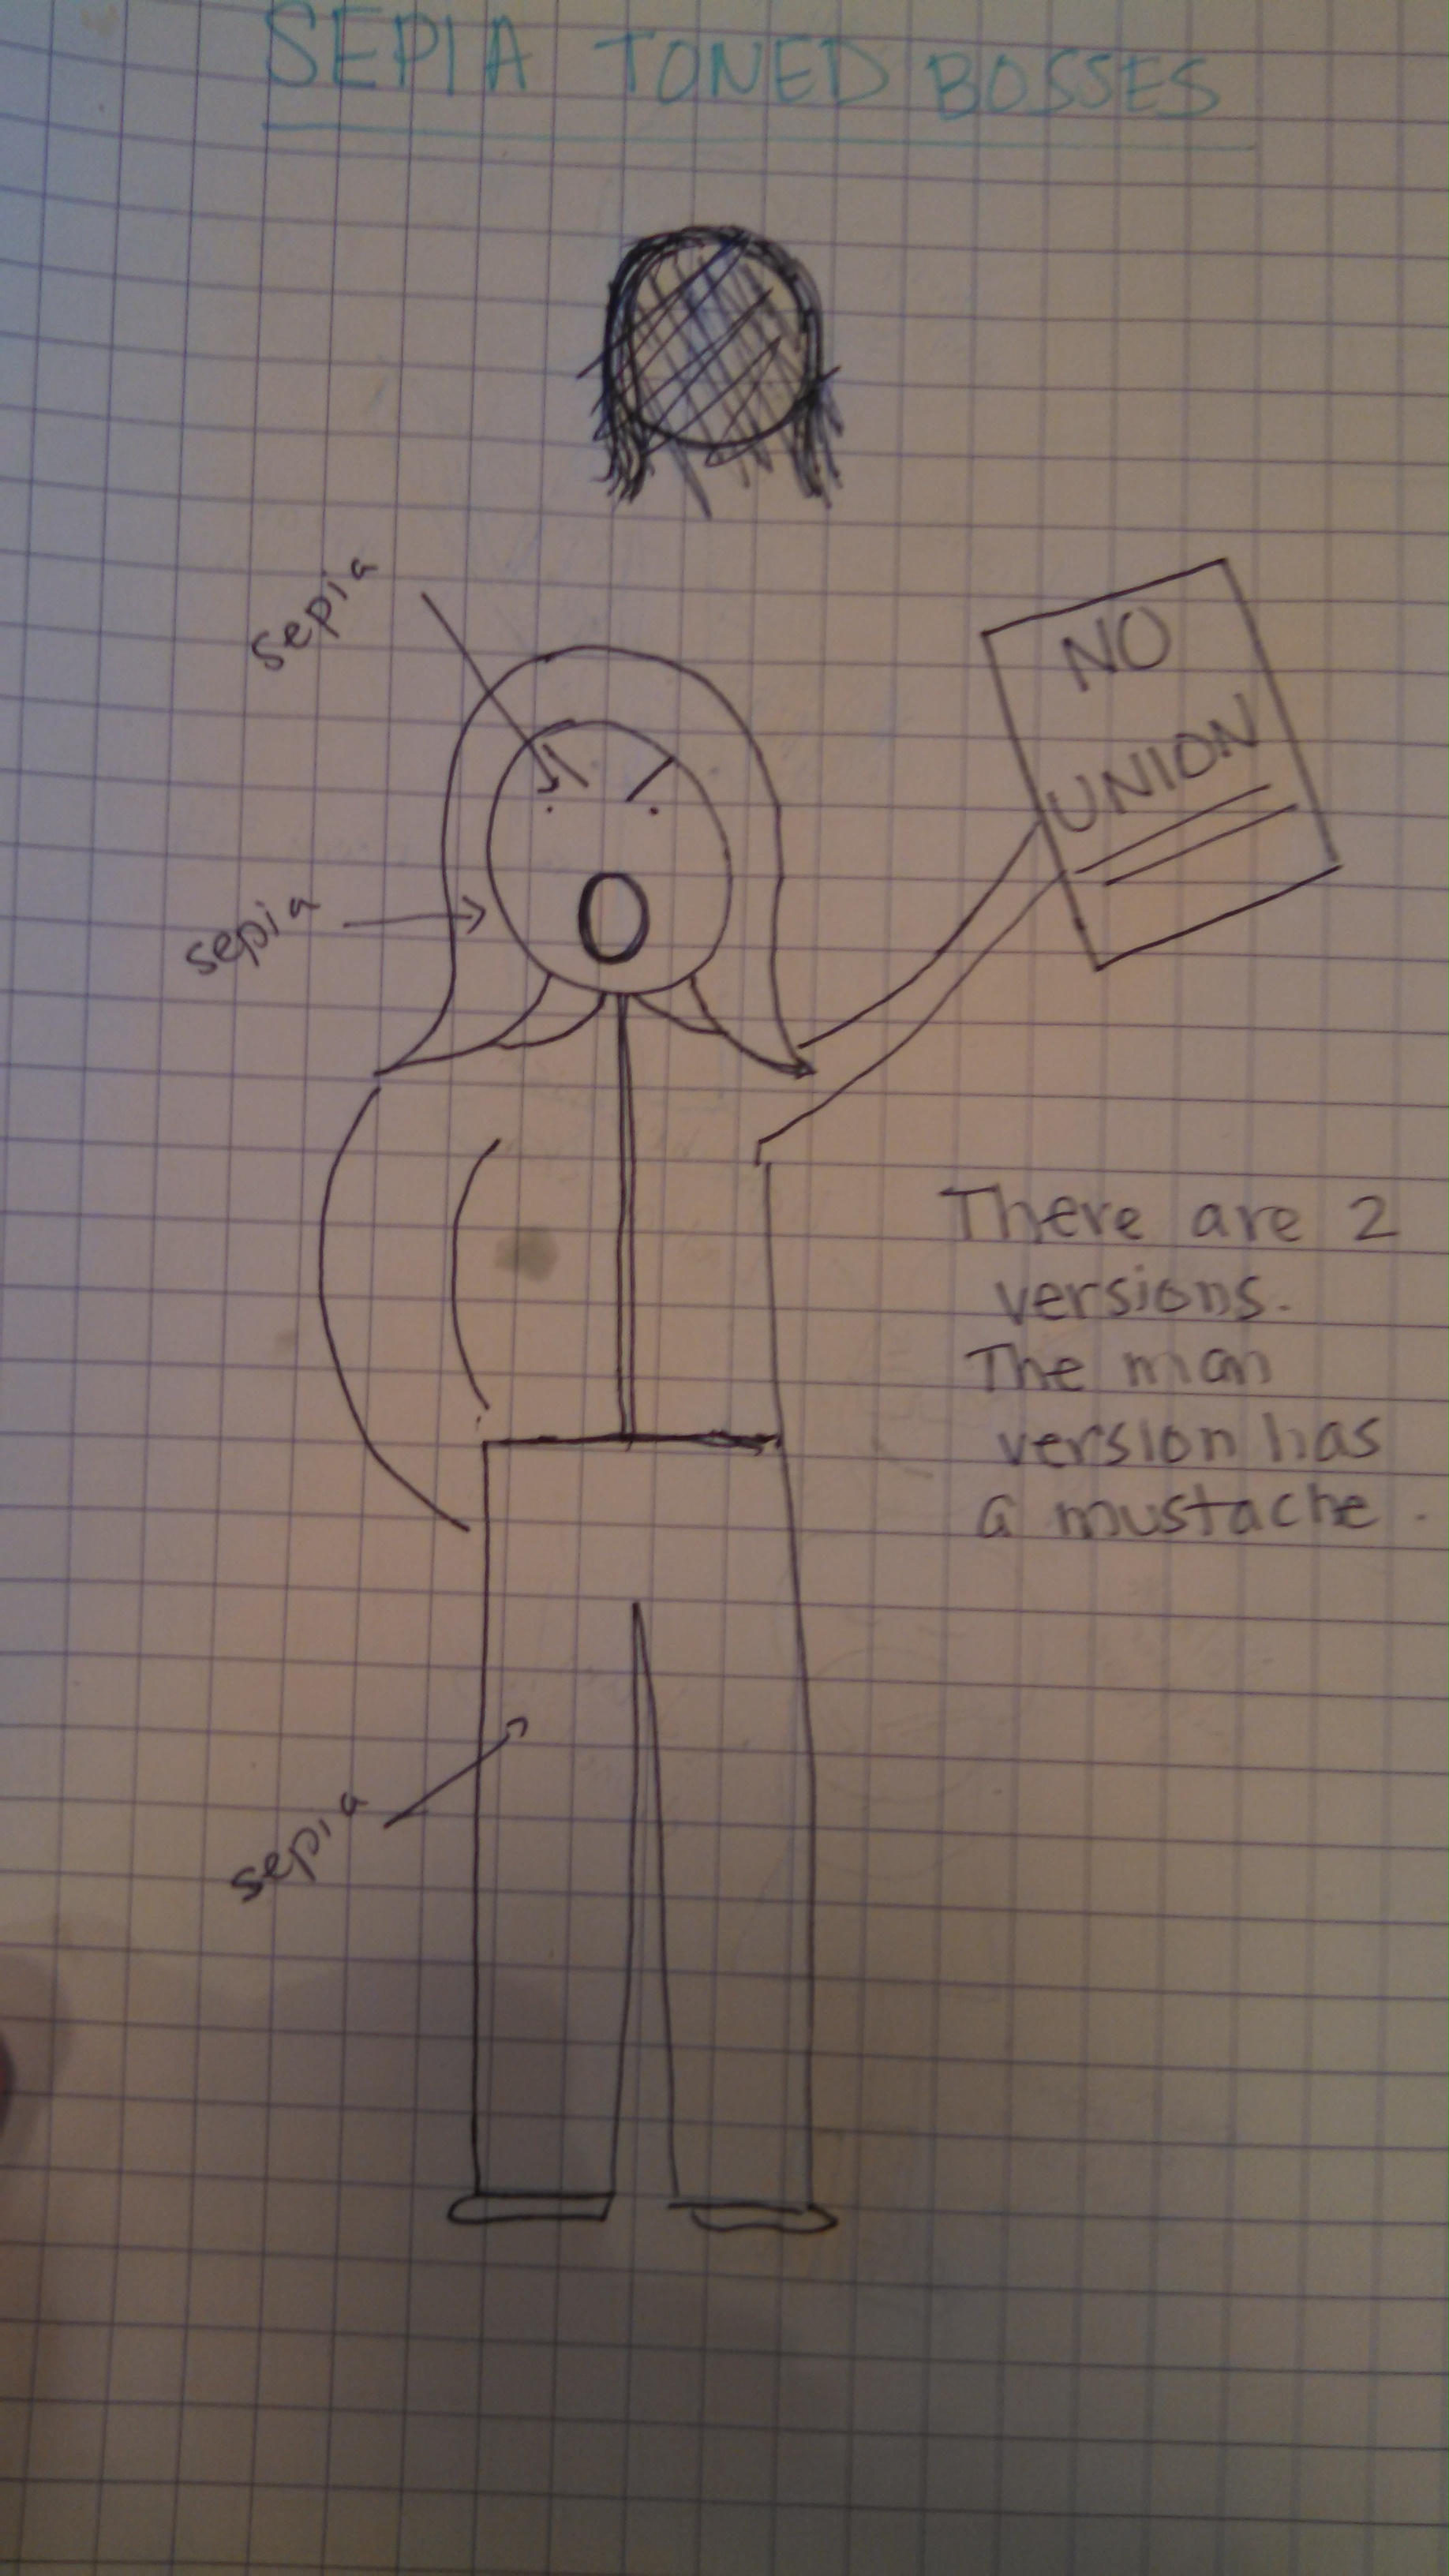 SEPIA TONED BOSSES
sepia
NO
UNION
sepia
There are 2
versions.
The man
version has
a mustache.
sepia